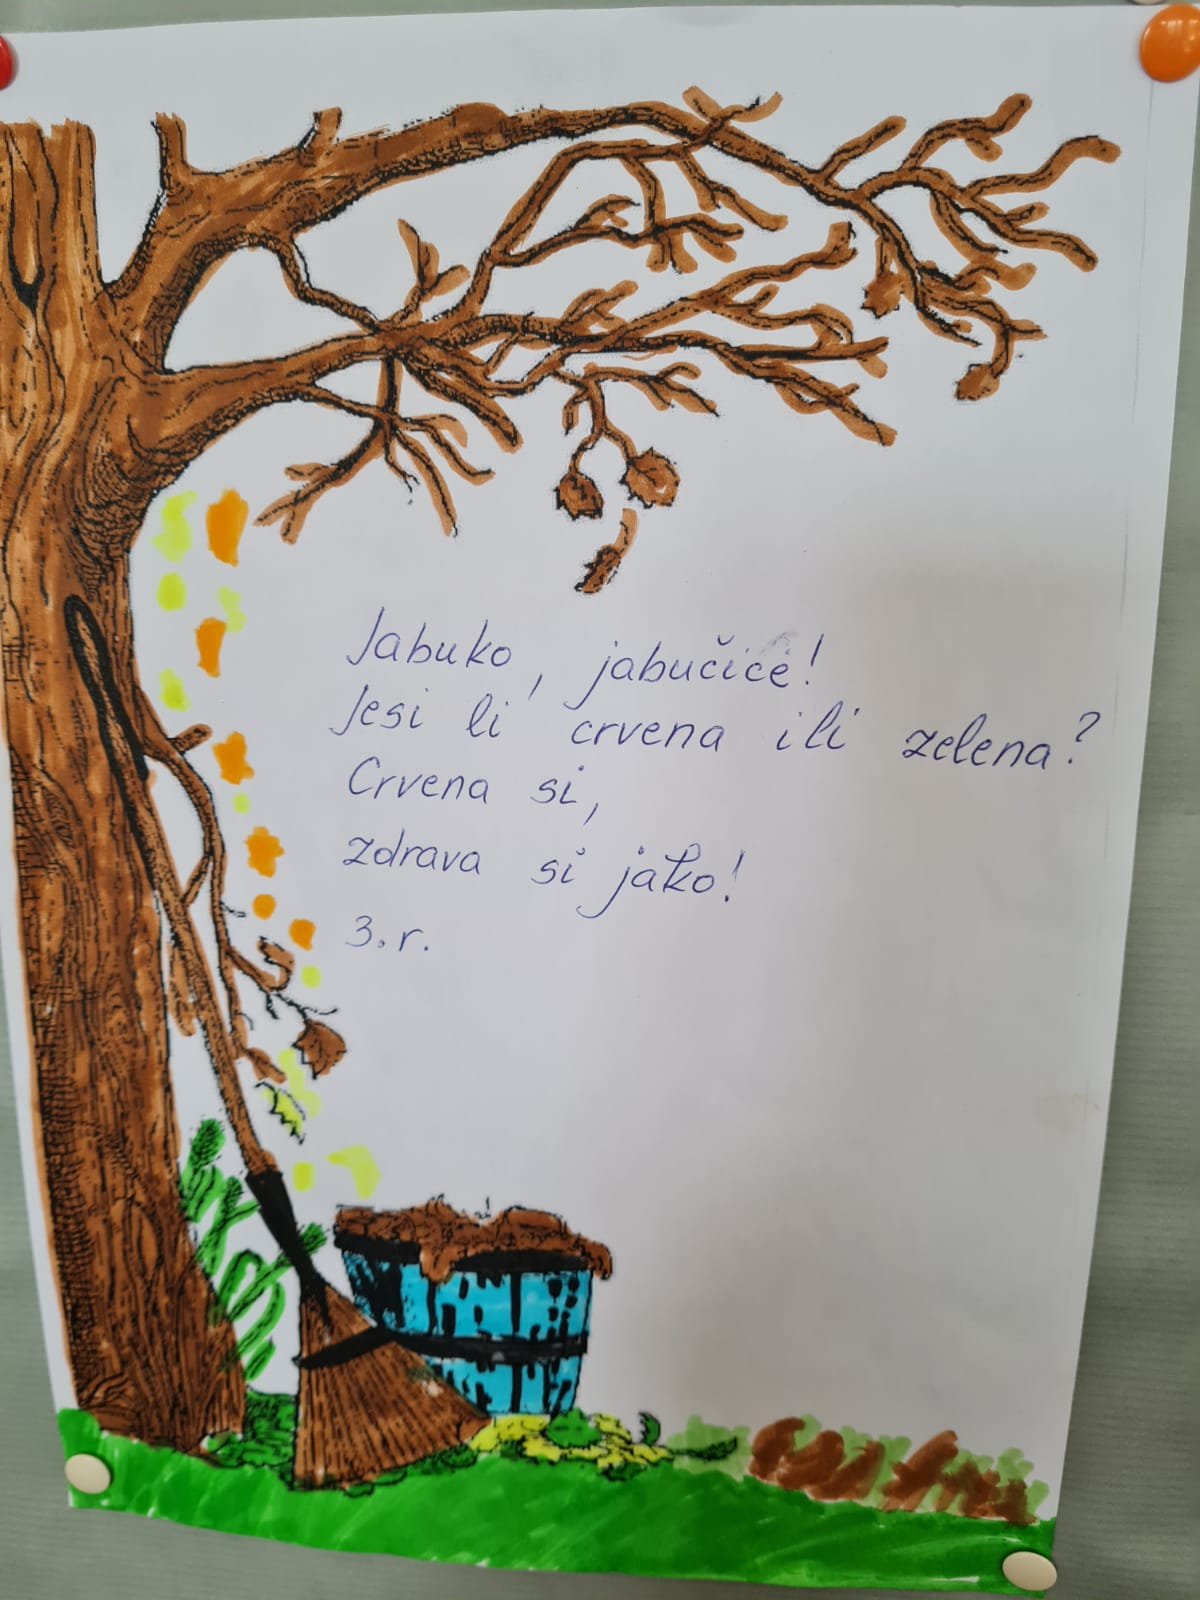 Jabuko, jabučice!
Jesi li crvena ili zelena?
Crvena si,
zdrava si jako!
3.r.